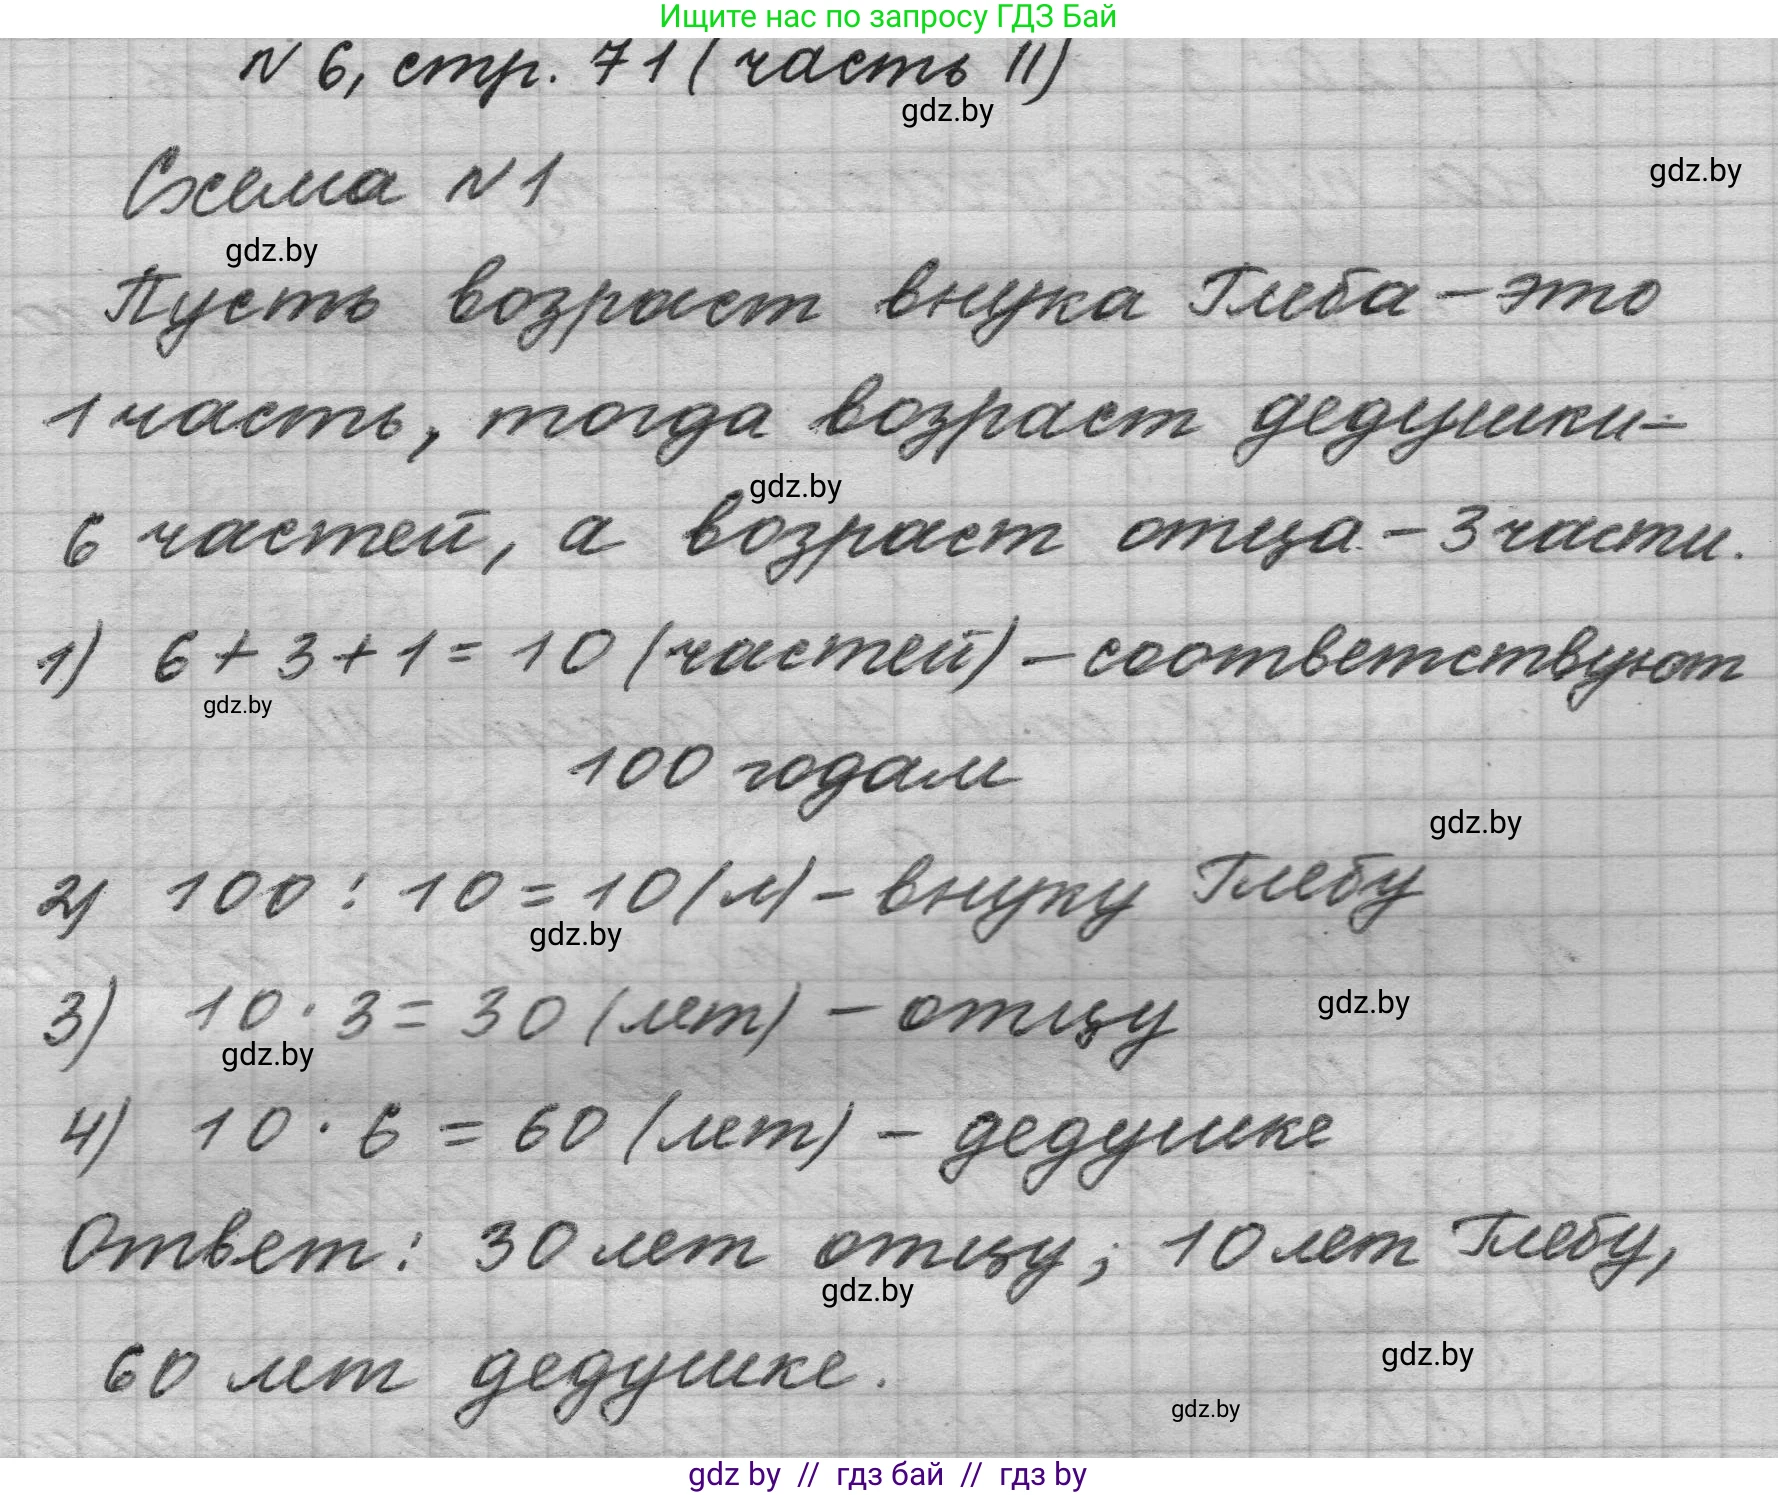 Ищите нас по запросу ГДЗ Бай
N 6, стр. 71 (часть II)
gdz.by
Схема N 1
gdz.by
gdz.by
Пусть возраст внука Глеба – это
1 часть, тогда возраст дедушки –
gdz.by
6 частей, а возраст отца – 3 части.
1) 6 + 3 + 1 = 10 (частей) – соответствуют
gdz.by
100 годам
gdz.by
2) 100 : 10 = 10 (л) – внуку Глебу
gdz.by
3) 10 · 3 = 30 (лет) – отцу
gdz.by
gdz.by
4) 10 · 6 = 60 (лет) – дедушке
Ответ: 30 лет отцу; 10 лет Глебу,
gdz.by
60 лет дедушке.
gdz.by
gdz.by
gdz by // гдз бай // гдз by